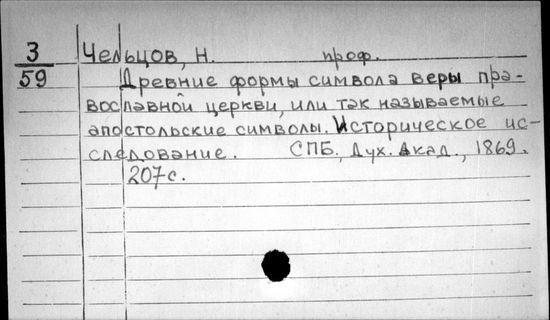 З Чельцов, Н. проф.
59 Древние формы символа веры пра-
вославной церкви, или так называемые
апостольские символы. Историческое ис-
следование. СПБ, Дух. Акад., 1869.
207 с.